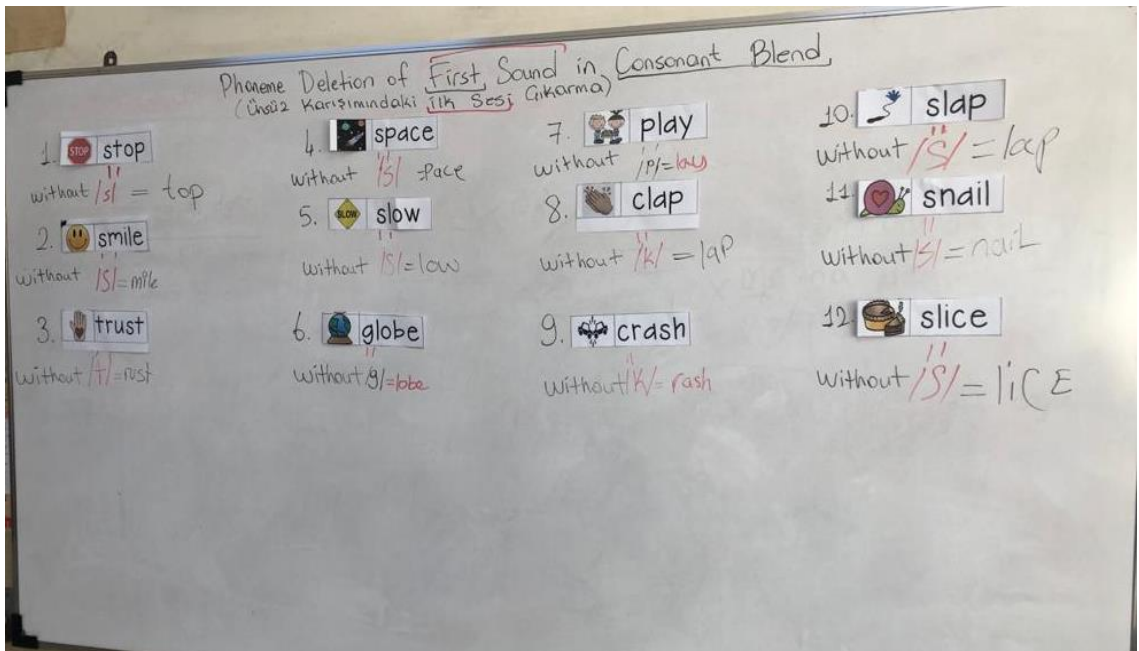 Phoneme Deletion of First Sound in Consonant Blend
(Ünsüz Karışımındaki ilk Sesi Çıkarma)
1. STOP stop
without /s/ = top
2. smile
without /S/=mile
3. trust
without /t/=rust
4. space
without /S/ =pace
5. SLOW slow
without /S/=low
6. globe
without /g/=lobe
7. play
without /p/=lay
8. clap
without /k/ = lap
9. crash
without /k/= rash
10. slap
without /S/ = lap
11. snail
without /S/=nail
12. slice
without /S/= liCE